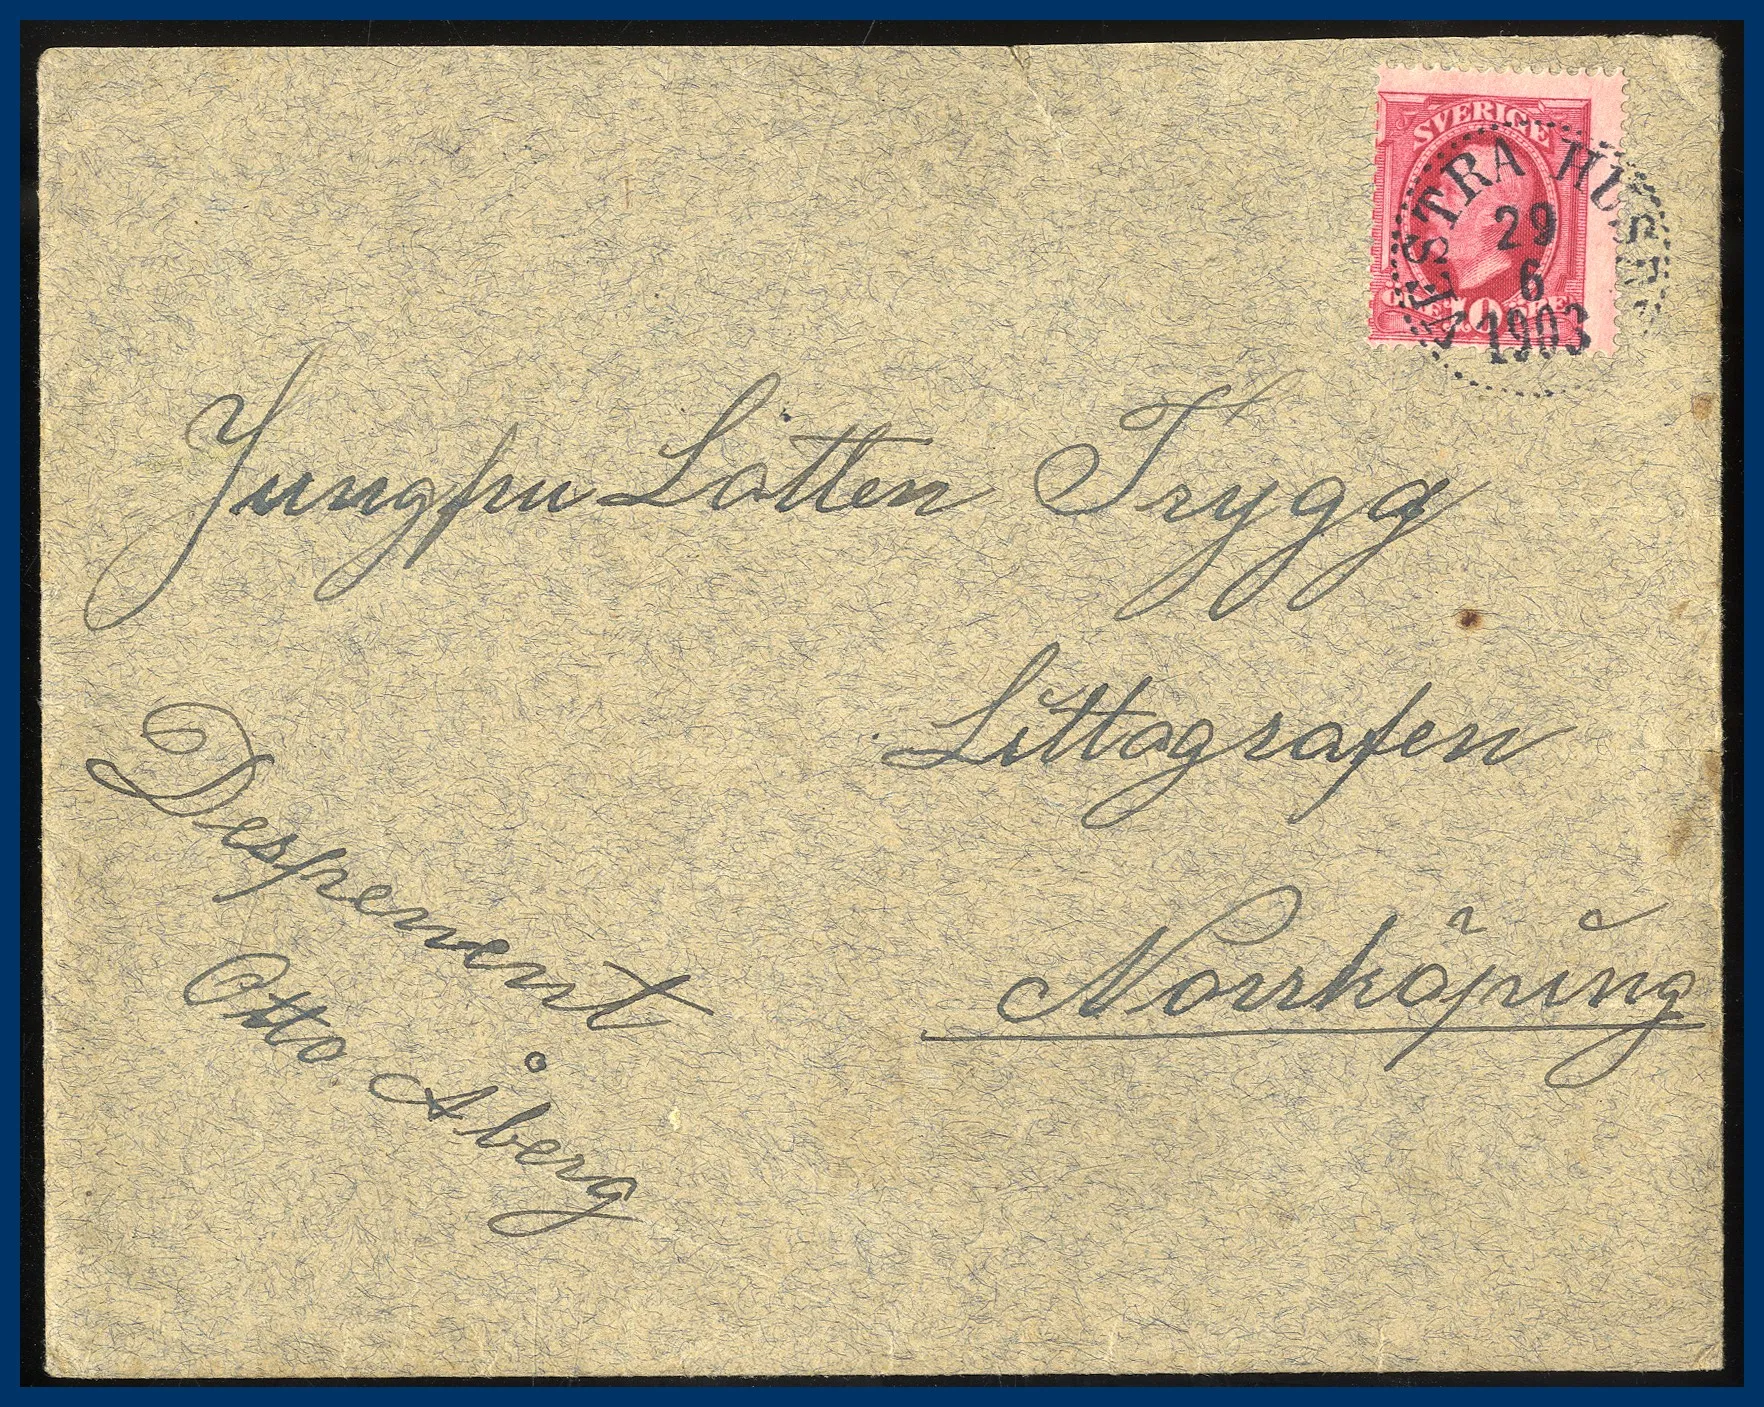 SVERIGE
VESTRA HUSBY
29
6
1903
10
Jungfru Lotten Trygg
Littografen
Norrköping
Otto Åberg